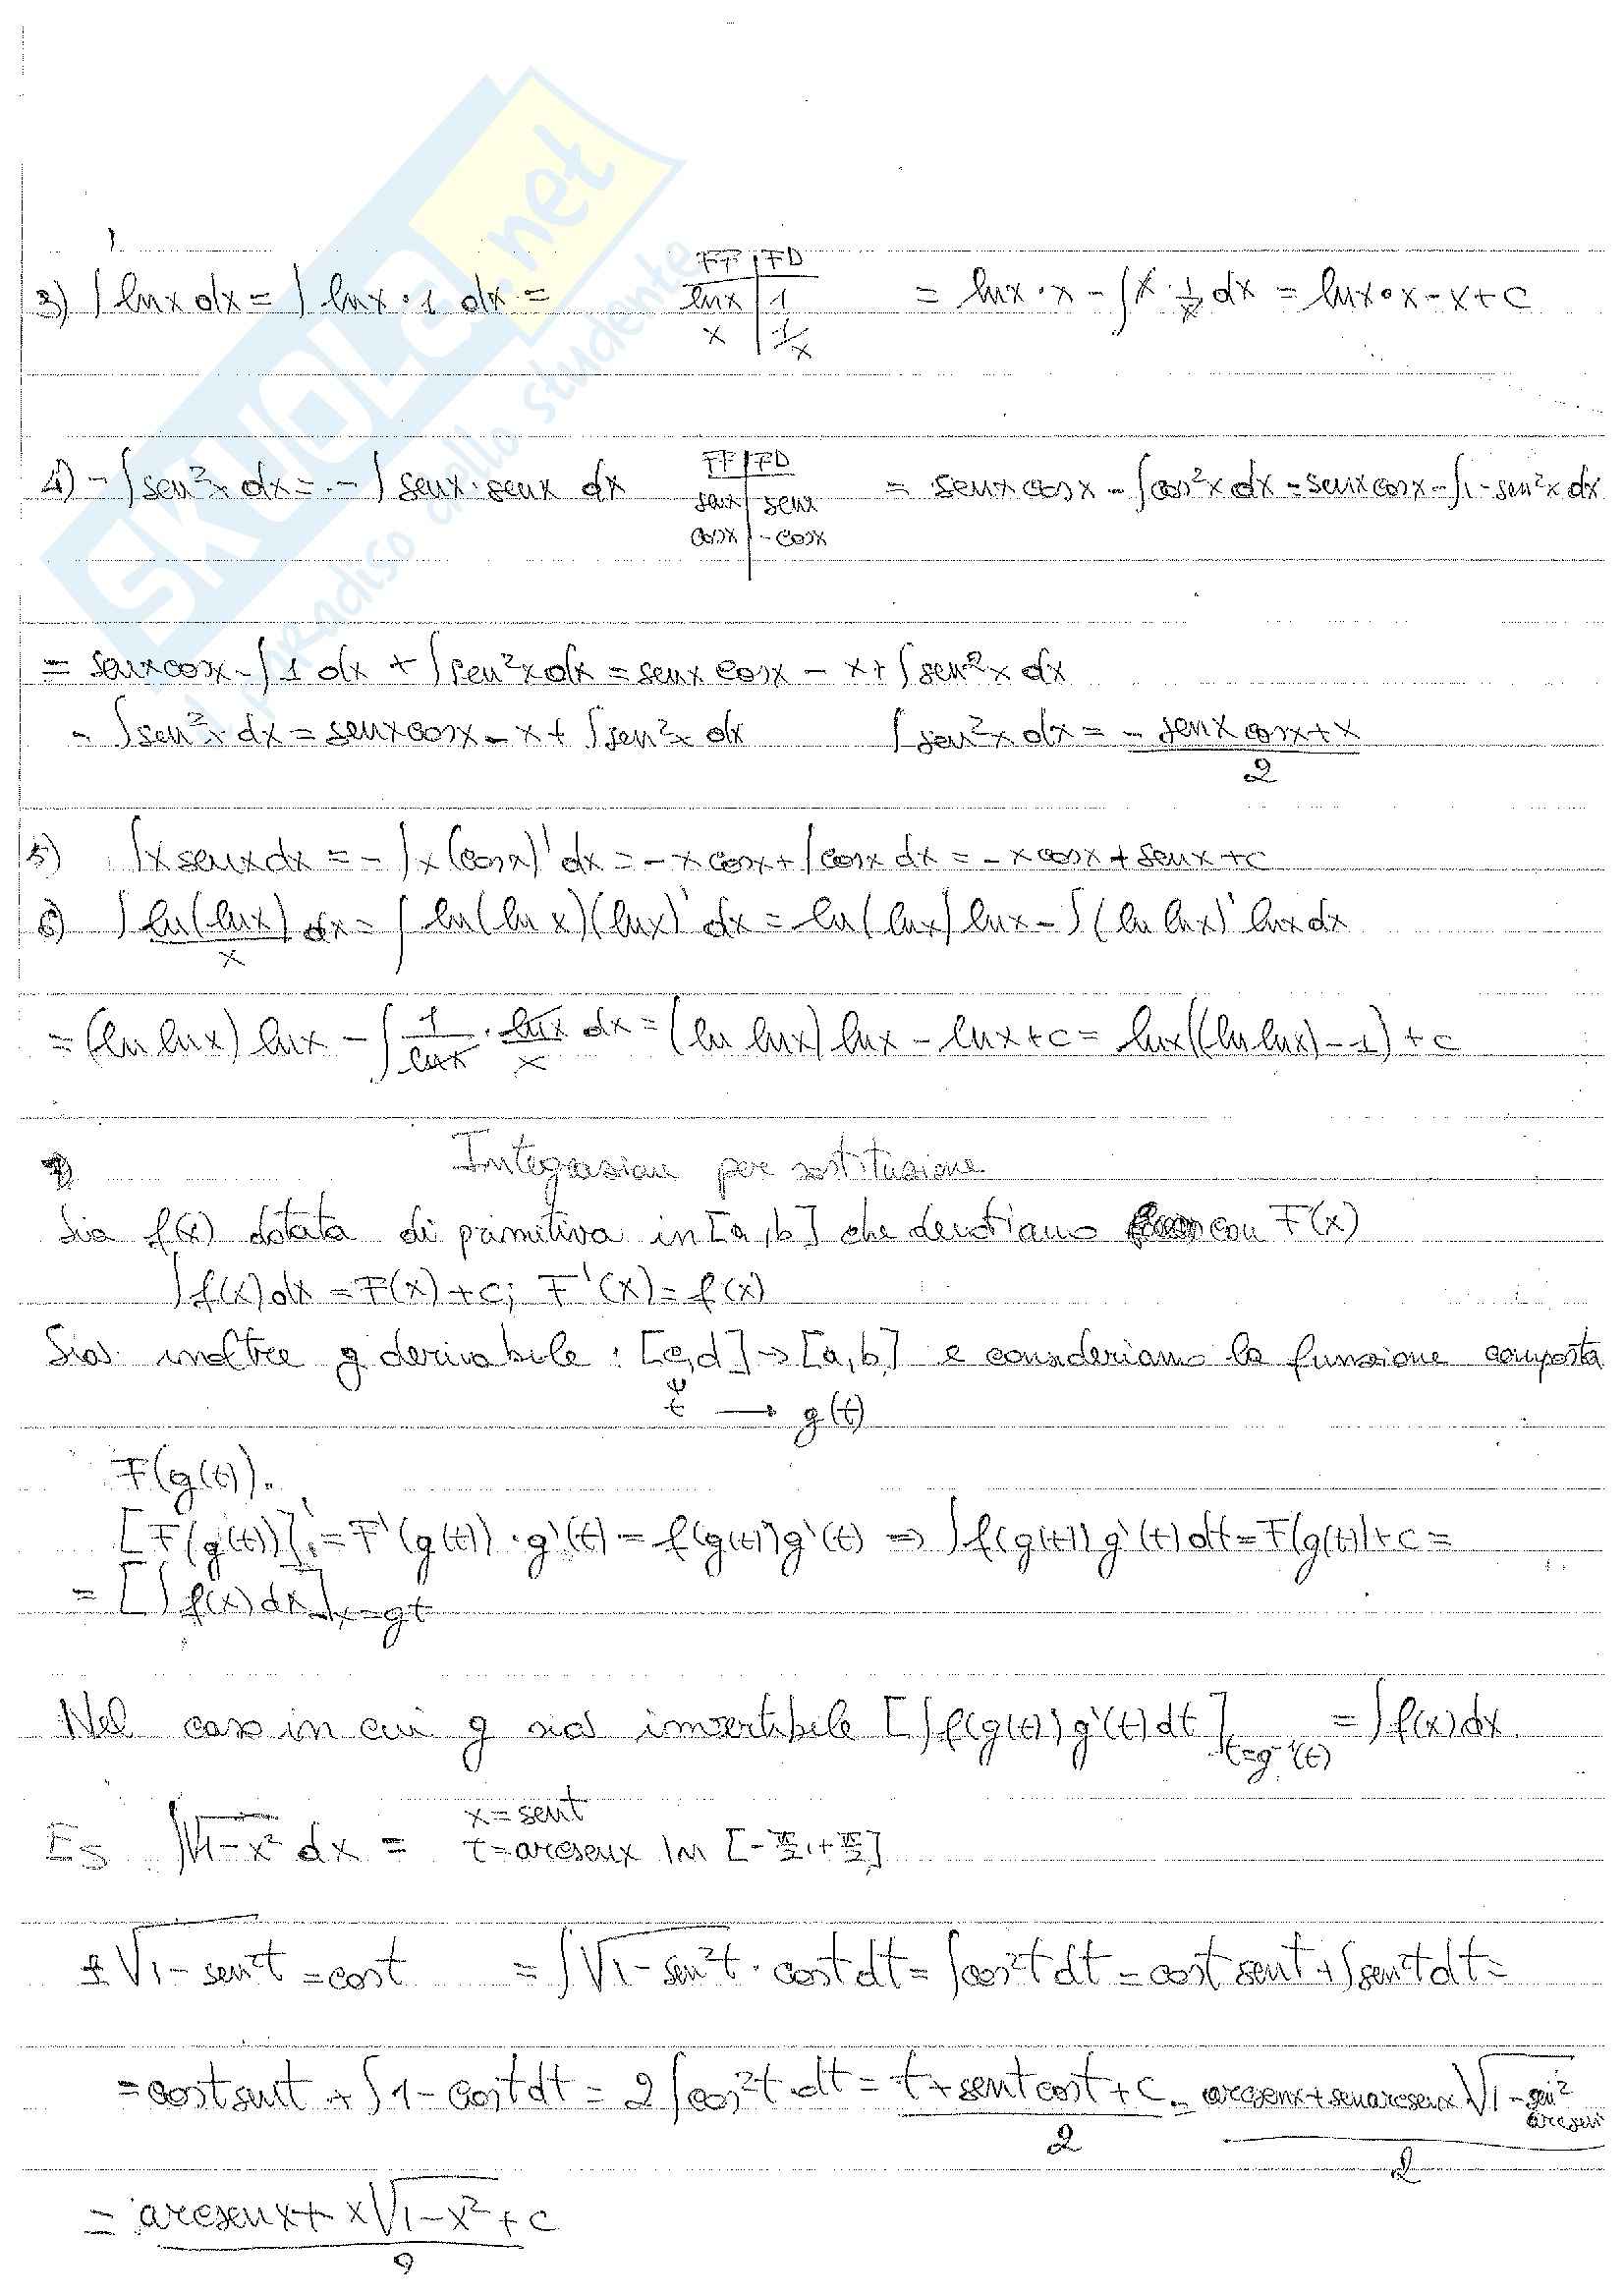 SKUOLA.net
il paradiso dello studente
3) ∫ lnx dx = ∫ lnx · 1 dx =   FF | FD   = lnx · x - ∫ x · 1/x dx = lnx · x - x + c
lnx | 1
x | 1/x
4) - ∫ sen²x dx = - ∫ senx · senx dx   FF | FD   = senx cosx - ∫ cos²x dx = senx cosx - ∫ 1 - sen²x dx
senx | senx
cosx | - cosx
= senx cosx - ∫ 1 dx + ∫ sen²x dx = senx cosx - x + ∫ sen²x dx
- ∫ sen²x dx = senx cosx - x + ∫ sen²x dx   ∫ sen²x dx = - senx cosx + x / 2
5) ∫ x senx dx = - ∫ x (cosx)' dx = - x cosx + ∫ cosx dx = - x cosx + senx + c
6) ∫ ln(lnx)/x dx = ∫ ln(ln x)(lnx)' dx = ln(lnx) lnx - ∫ (ln lnx)' lnx dx
= (ln lnx) lnx - ∫ 1/lnx · lnx/x dx = (ln lnx) lnx - lnx + c = lnx((ln lnx) - 1) + c
Integrazione per sostituzione
Sia f(x) dotata di primitiva in [a,b] che denotiamo con F(x)
∫ f(x) dx = F(x) + c; F'(x) = f(x)
Sia inoltre g derivabile : [c,d] → [a,b] e consideriamo la funzione composta
t → g(t)
F(g(t)).
[F(g(t))]' = F'(g(t)) · g'(t) = f(g(t)) g'(t) ⇒ ∫ f(g(t)) g'(t) dt = F(g(t)) + c =
= [∫ f(x) dx] x = gt
Nel caso in cui g sia invertibile [∫ f(g(t)) g'(t) dt] t=g⁻¹(t) = ∫ f(x) dx
x = sent
Es ∫ √1-x² dx =   t = arcsenx in [-π/2, +π/2]
± √1 - sen²t = cost   = ∫ √1 - sen²t · cost dt = ∫ cos²t dt = cost sent + ∫ sen²t dt =
= cost sent + ∫ 1 - cos t dt = 2 ∫ cos²t dt = t + sent cost + c / 2 = arcsenx + senarcsenx √1 - sen² arcsen / 2
= arcsenx + x √1-x² + c / 2